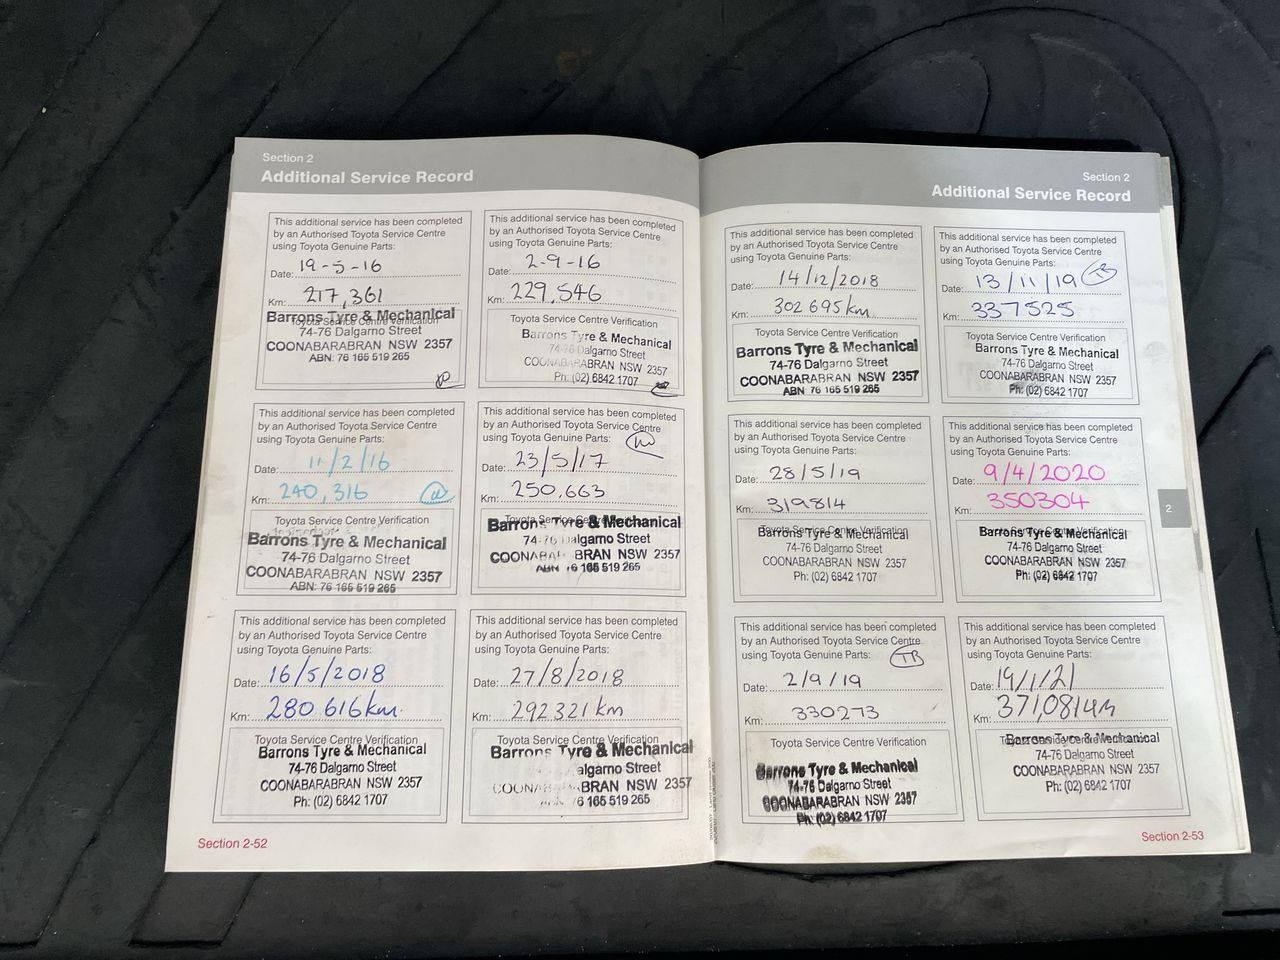 Section 2
Additional Service Record
This additional service has been completed
by an Authorised Toyota Service Centre
using Toyota Genuine Parts:
Date: 19-5-16
Km: 217,361
Toyota Service Centre Verification
Barrons Tyre & Mechanical
74-76 Dalgarno Street
COONABARABRAN NSW 2357
ABN: 76 165 519 265
This additional service has been completed
by an Authorised Toyota Service Centre
using Toyota Genuine Parts:
Date: 2-9-16
Km: 229,546
Toyota Service Centre Verification
Barrons Tyre & Mechanical
74-76 Dalgarno Street
COONABARABRAN NSW 2357
Ph: (02) 6842 1707
This additional service has been completed
by an Authorised Toyota Service Centre
using Toyota Genuine Parts:
Date: 11/2/16
Km: 240,316
Toyota Service Centre Verification
Barrons Tyre & Mechanical
74-76 Dalgarno Street
COONABARABRAN NSW 2357
ABN: 76 165 519 265
This additional service has been completed
by an Authorised Toyota Service Centre
using Toyota Genuine Parts:
Date: 23/5/17
Km: 250,663
Toyota Service Centre Verification
Barrons Tyre & Mechanical
74-76 Dalgarno Street
COONABARABRAN NSW 2357
ABN 76 165 519 265
This additional service has been completed
by an Authorised Toyota Service Centre
using Toyota Genuine Parts:
Date: 16/5/2018
Km: 280 616km
Toyota Service Centre Verification
Barrons Tyre & Mechanical
74-76 Dalgarno Street
COONABARABRAN NSW 2357
Ph: (02) 6842 1707
This additional service has been completed
by an Authorised Toyota Service Centre
using Toyota Genuine Parts:
Date: 27/8/2018
Km: 292 321 km
Toyota Service Centre Verification
Barrons Tyre & Mechanical
algarno Street
COONA BRAN NSW 2357
6 165 519 265
Section 2-52
Section 2
Additional Service Record
This additional service has been completed
by an Authorised Toyota Service Centre
using Toyota Genuine Parts:
Date: 14/12/2018
Km: 302 695km
Toyota Service Centre Verification
Barrons Tyre & Mechanical
74-76 Dalgarno Street
COONABARABRAN NSW 2357
ABN 76 165 519 265
This additional service has been completed
by an Authorised Toyota Service Centre
using Toyota Genuine Parts:
Date: 13/11/19 TB
Km: 337525
Toyota Service Centre Verification
Barrons Tyre & Mechanical
74-76 Dalgarno Street
COONABARABRAN NSW 2357
Ph: (02) 6842 1707
This additional service has been completed
by an Authorised Toyota Service Centre
using Toyota Genuine Parts:
Date: 28/5/19
Km: 319814
Toyota Service Centre Verification
Barrons Tyre & Mechanical
74-76 Dalgarno Street
COONABARABRAN NSW 2357
Ph: (02) 6842 1707
This additional service has been completed
by an Authorised Toyota Service Centre
using Toyota Genuine Parts:
Date: 9/4/2020
Km: 350304
Toyota Service Centre Verification
Barrons Tyre & Mechanical
74-76 Dalgarno Street
COONABARABRAN NSW 2357
Ph: (02) 6842 1707
2
This additional service has been completed
by an Authorised Toyota Service Centre
using Toyota Genuine Parts: TB
Date: 2/9/19
Km: 330273
Toyota Service Centre Verification
Barrons Tyre & Mechanical
74-76 Dalgarno Street
COONABARABRAN NSW 2357
Ph: (02) 6842 1707
This additional service has been completed
by an Authorised Toyota Service Centre
using Toyota Genuine Parts:
Date: 19/1/21
Km: 371,081km
Toyota Service Centre Verification
Barrons Tyre & Mechanical
74-76 Dalgarno Street
COONABARABRAN NSW 2357
Ph: (02) 6842 1707
Section 2-53